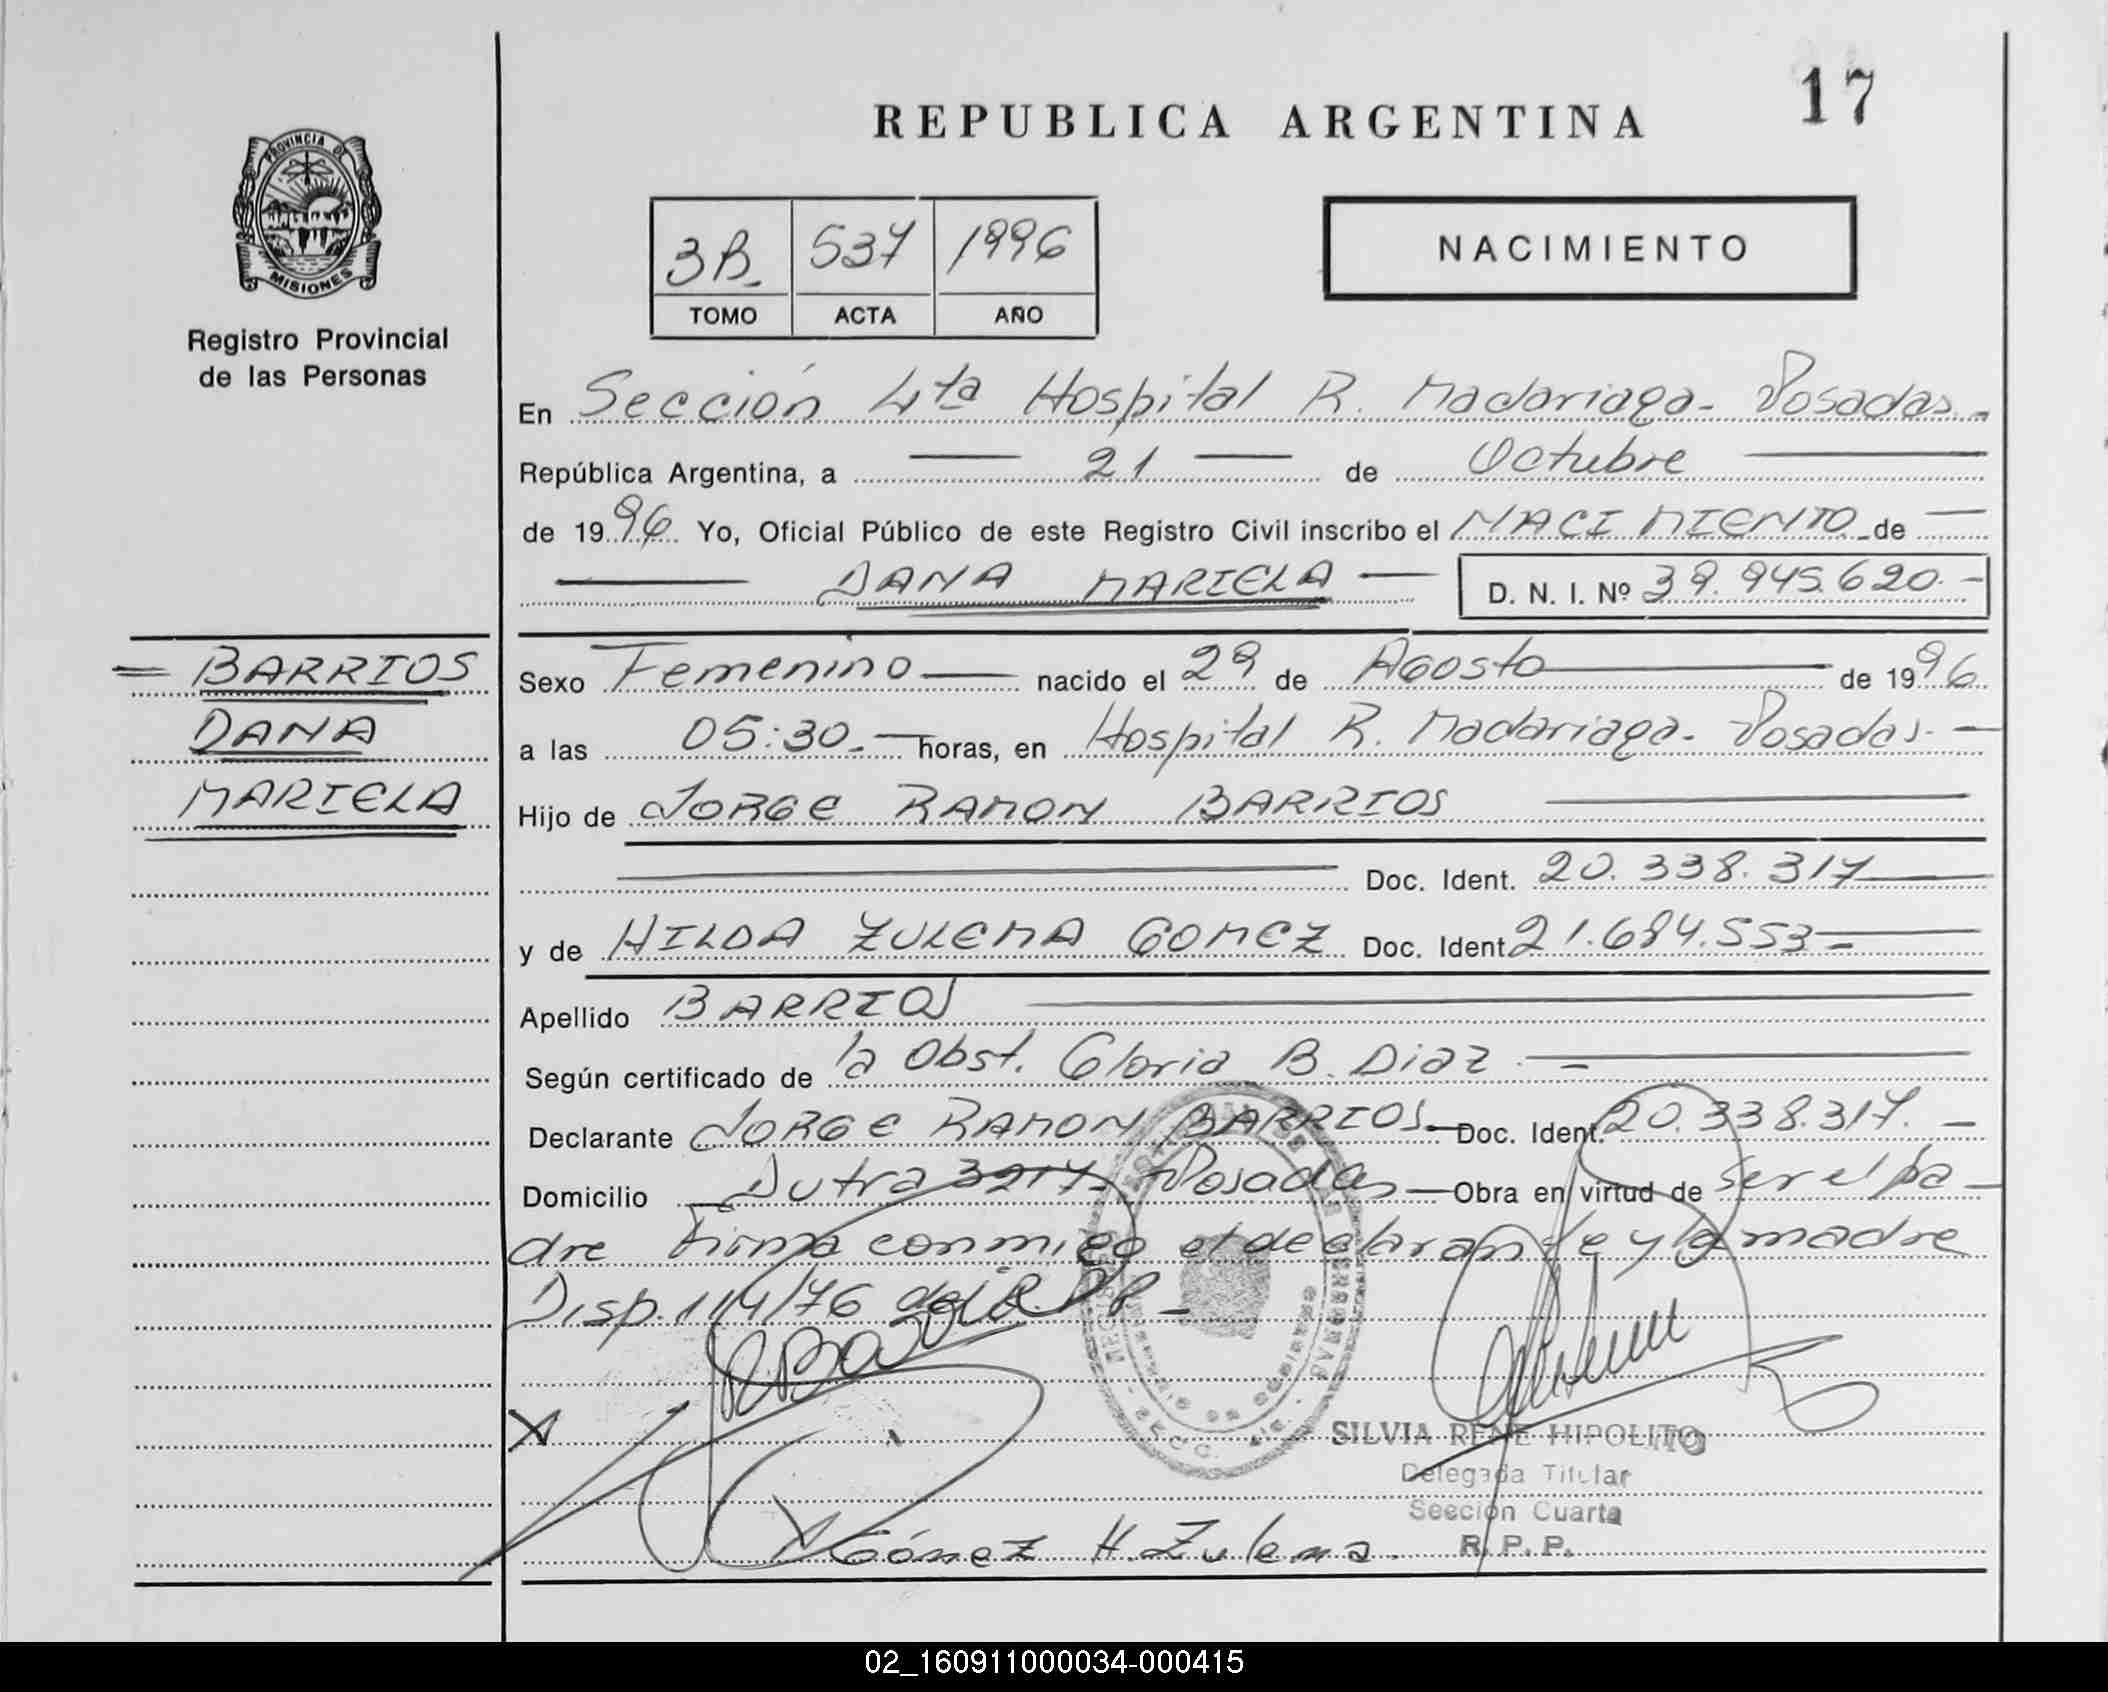 17
REPUBLICA ARGENTINA
PROVINCIA DE
MISIONES
Registro Provincial
de las Personas
3B. 537 1996
TOMO ACTA AÑO
NACIMIENTO
En Sección 4ta Hospital R. Madariaga - Posadas -
República Argentina, a — 21 — de Octubre —
de 1996 Yo, Oficial Público de este Registro Civil inscribo el NACIMIENTO de —
— DANA MARIELA — D. N. I. Nº 39.945.620.-
= BARRIOS
DANA
MARIELA
Sexo Femenino — nacido el 29 de Agosto — de 1996
a las 05:30.— horas, en Hospital R. Madariaga - Posadas. —
Hijo de JORGE RAMON BARRIOS —
— Doc. Ident. 20.338.317 —
y de HILDA ZULEMA GOMEZ Doc. Ident. 21.684.553 =
Apellido BARRIOS —
Según certificado de la Obst. Gloria B. Diaz. —
Declarante JORGE RAMON BARRIOS — Doc. Ident. 20.338.317. —
Domicilio — Dutra 3217 - Posadas — Obra en virtud de ser el pa -
dre firma conmigo el declarante y la madre
Disp. 114/76 del R.P.P. -
X
SILVIA RENE HIPOLITO
Delegada Titular
Sección Cuarta
R. P. P.
X Gómez H. Zulema.
02_160911000034-000415